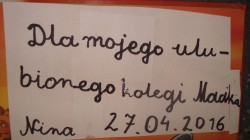 Dla mojego ulu-
bionego kolegi
Nina 27.04.2016